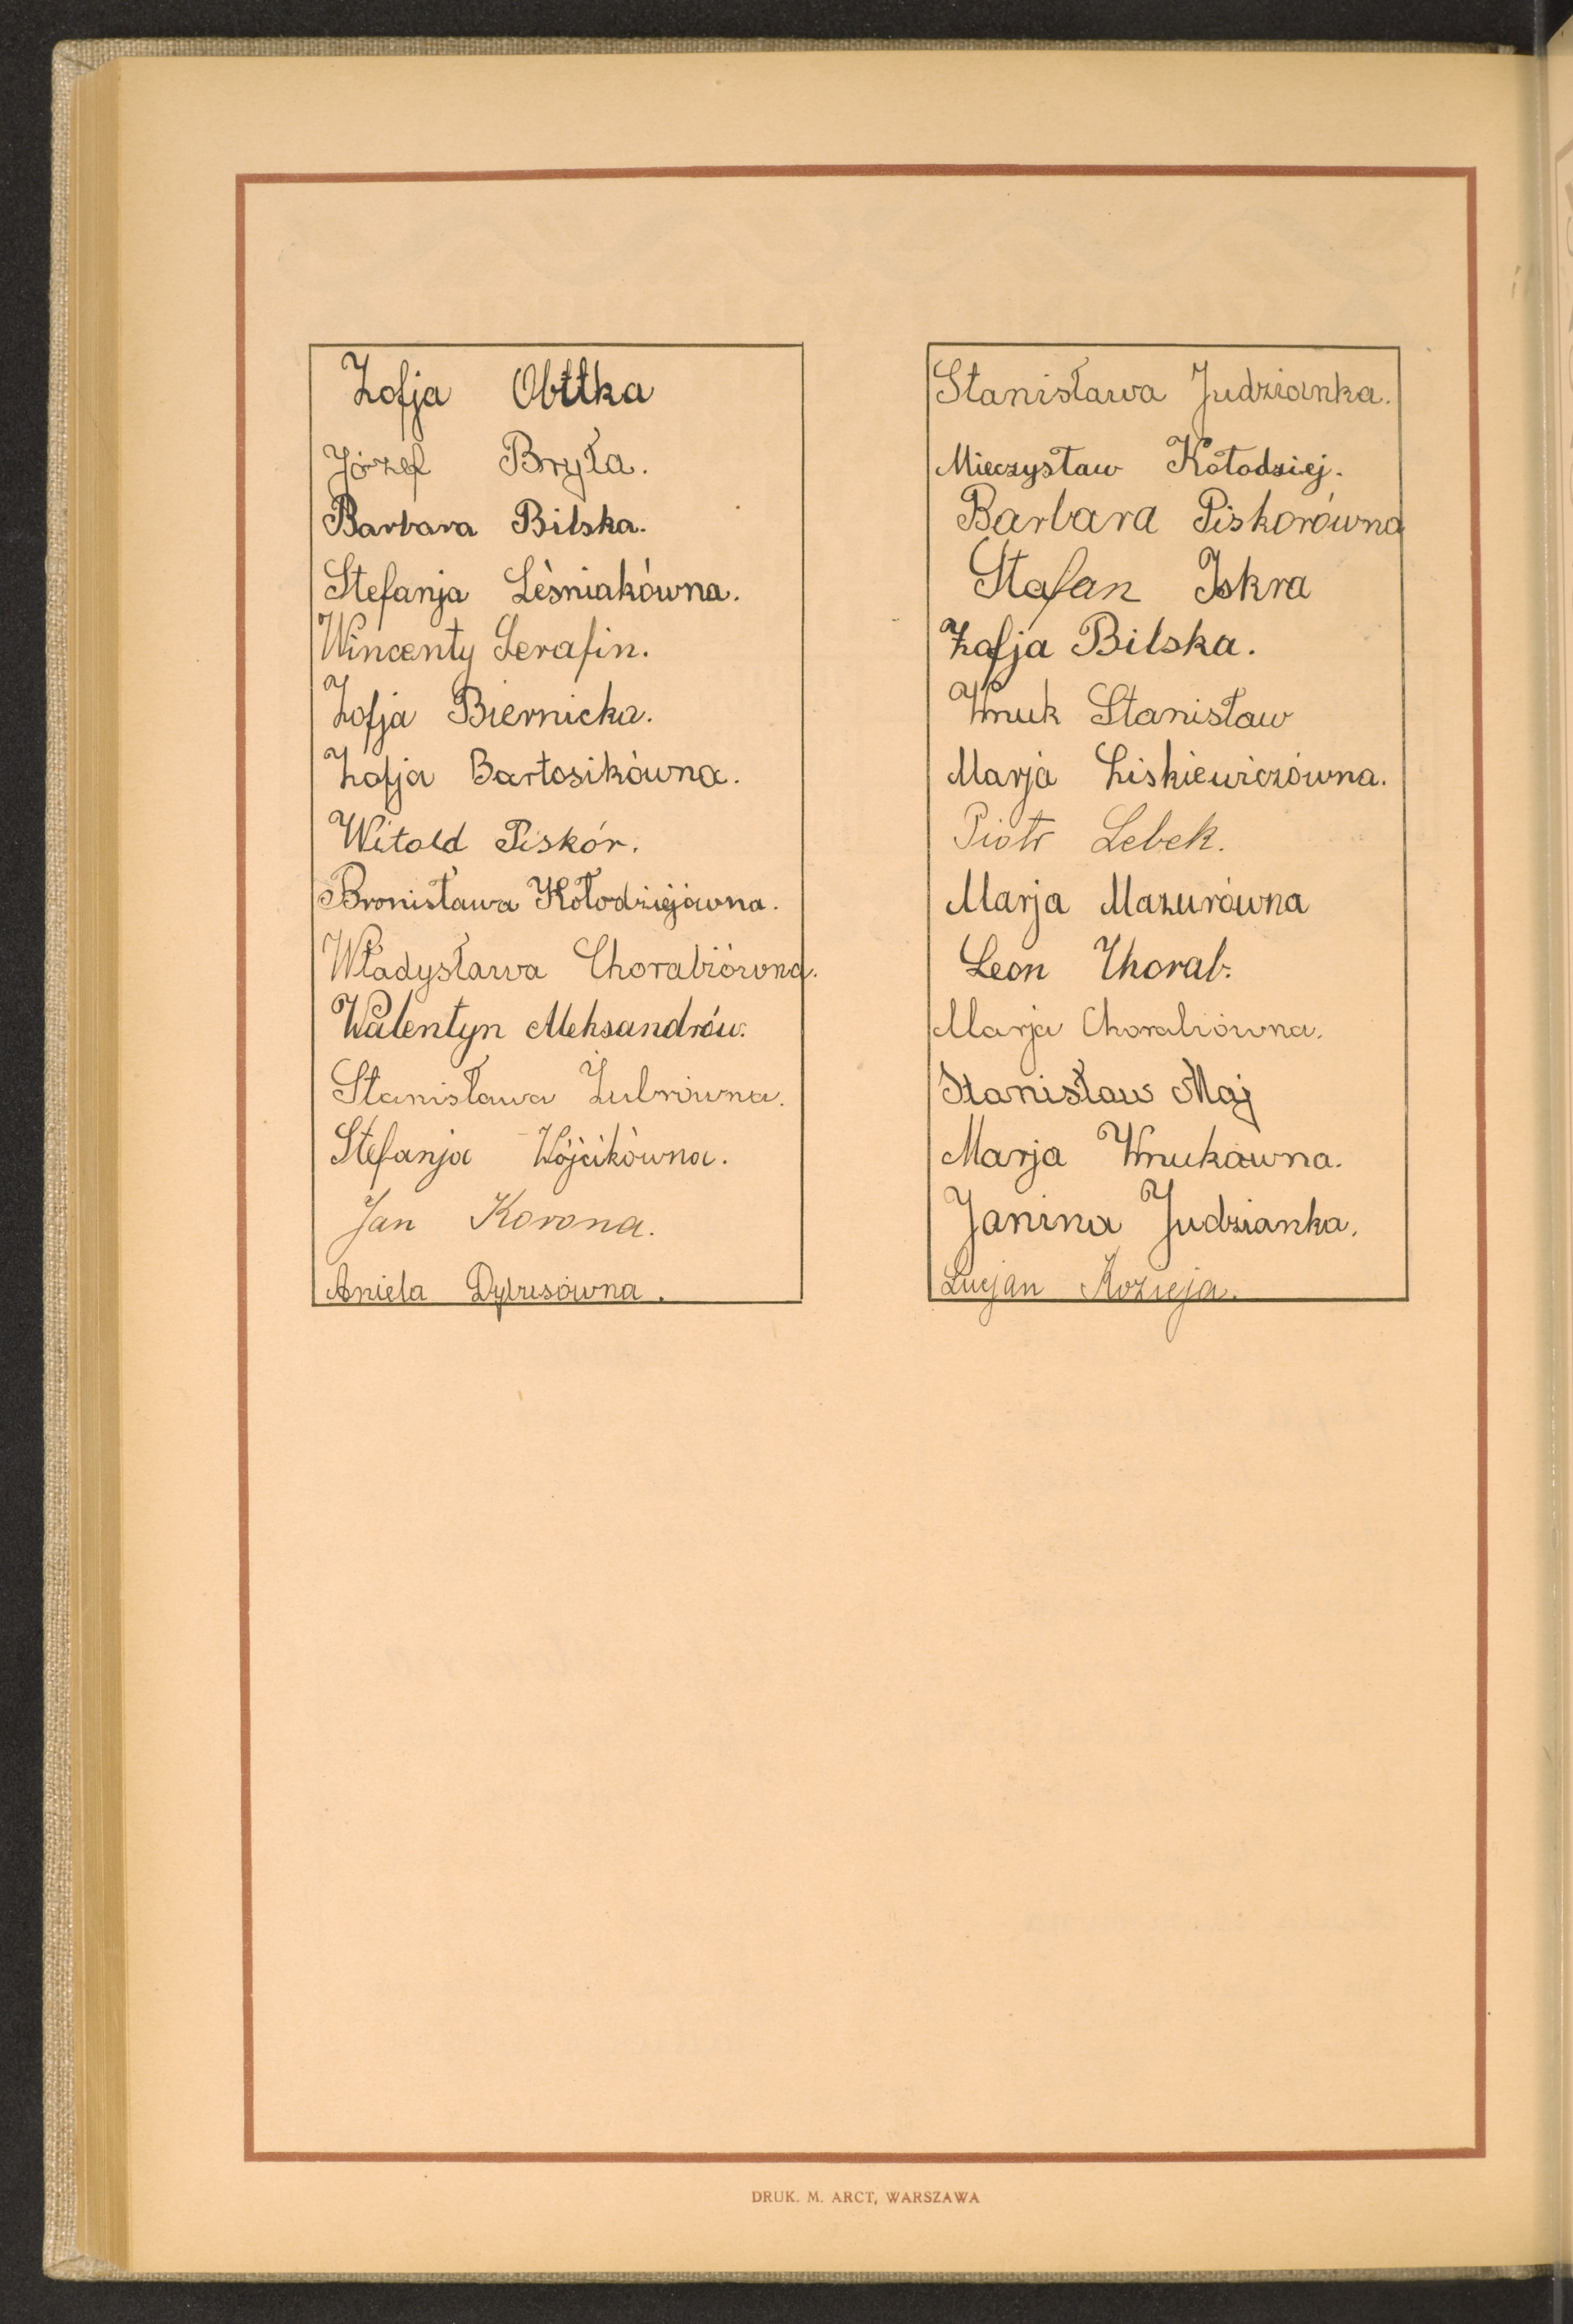 Zofja Obttka
Józef Bryła.
Barbara Bilska.
Stefanja Leśniakówna.
Wincenty Serafin.
Zofja Biernicka.
Zofja Bartosikówna.
Witold Piskór.
Bronisława Kołodziejówna.
Władysława Chorabiówna.
Walentyn Aleksandrów.
Stanisława Żubrówna.
Stefanja Wójcikówna.
Jan Korona.
Aniela
Stanisława Judzianka.
Mieczysław Kołodziej.
Barbara Piskorówna
Stafan Iskra
Zofja Bilska.
Wnuk Stanisław
Marja Liskiewiczówna.
Piotr Lebek.
Marja Mazurówna
Leon Chorab.
Marja Chorabiówna.
Stanisław Maj
Marja Wnukówna.
Janina Judzianka.
Lucjan Kozieja.
DRUK. M. ARCT, WARSZAWA